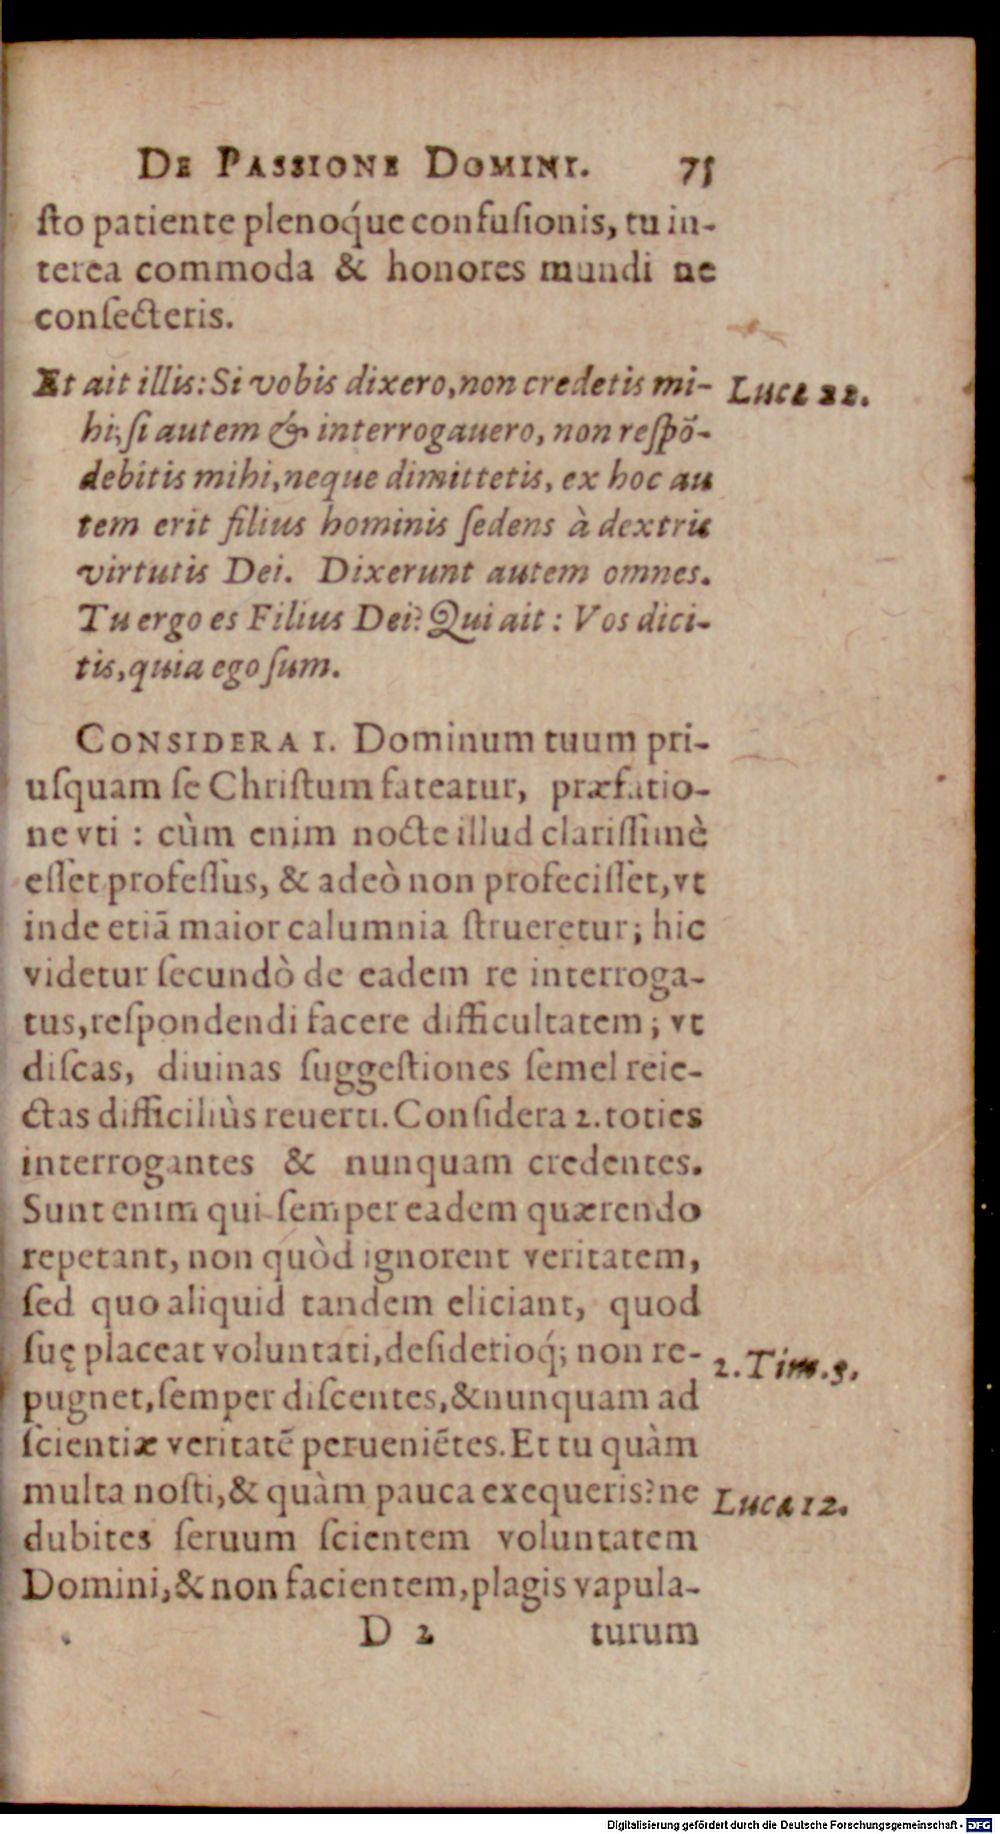 DE PASSIONE DOMINI. 75
ſto patiente plenoq́ue confuſionis, tu in-
terea commoda & honores mundi ne
conſecteris.
Et ait illis: Si vobis dixero, non credetis mi- Luca 22.
hi; ſi autem & interrogauero, non reſpõ-
debitis mihi, neque dimittetis, ex hoc au
tem erit filius hominis ſedens à dextris
virtutis Dei. Dixerunt autem omnes.
Tu ergo es Filius Dei? Qui ait: Vos dici-
tis, quia ego ſum.
CONSIDERA 1. Dominum tuum pri-
uſquam ſe Chriſtum fateatur, præfatio-
ne vti: cùm enim nocte illud clariſſimè
eſſet profeſſus, & adeò non profeciſſet, vt
inde etiã maior calumnia ſtrueretur; hic
videtur ſecundò de eadem re interroga-
tus, reſpondendi facere difficultatem; vt
diſcas, diuinas ſuggeſtiones ſemel reie-
ctas difficiliùs reuerti. Conſidera 2. toties
interrogantes & nunquam credentes.
Sunt enim qui ſemper eadem quærendo
repetant, non quòd ignorent veritatem,
ſed quo aliquid tandem eliciant, quod
ſuę placeat voluntati, deſiderioq́; non re- 2. Tim. 3.
pugnet, ſemper diſcentes, & nunquam ad
ſcientiæ veritatẽ perueniẽtes. Et tu quàm
multa noſti, & quàm pauca exequeris? ne Luca 12.
dubites ſeruum ſcientem voluntatem
Domini, & non facientem, plagis vapula-
D 2 turum
Digitalisierung gefördert durch die Deutsche Forschungsgemeinschaft - DFG